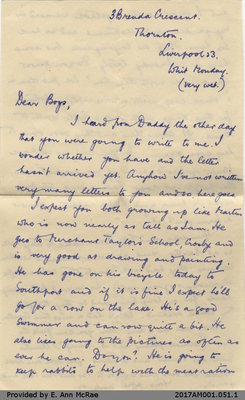 3 Brenda Crescent.
Thornton.
Liverpool 23.
Whit Monday.
(very wet.)
Dear Boys,
I heard from Daddy the other day
that you were going to write to me. I
wonder whether you have and the letter
hasn't arrived yet. Anyhow I've not written
very many letters to you and so here goes.
I expect you both growing up like Martin
who is now nearly as tall as I am. He
goes to Merchant Taylor's School, Crosby and
is very good at drawing and painting.
He has gone on his bicycle today to
Southport and if it is fine I expect he'll
go for a row on the lake. He's a good
swimmer and can row quite a bit. He
also likes going to the pictures as often as
ever he can. Do you? He is going to
keep rabbits to help with the meat ration
Provided by E. Ann McRae
2017AM001.051.1